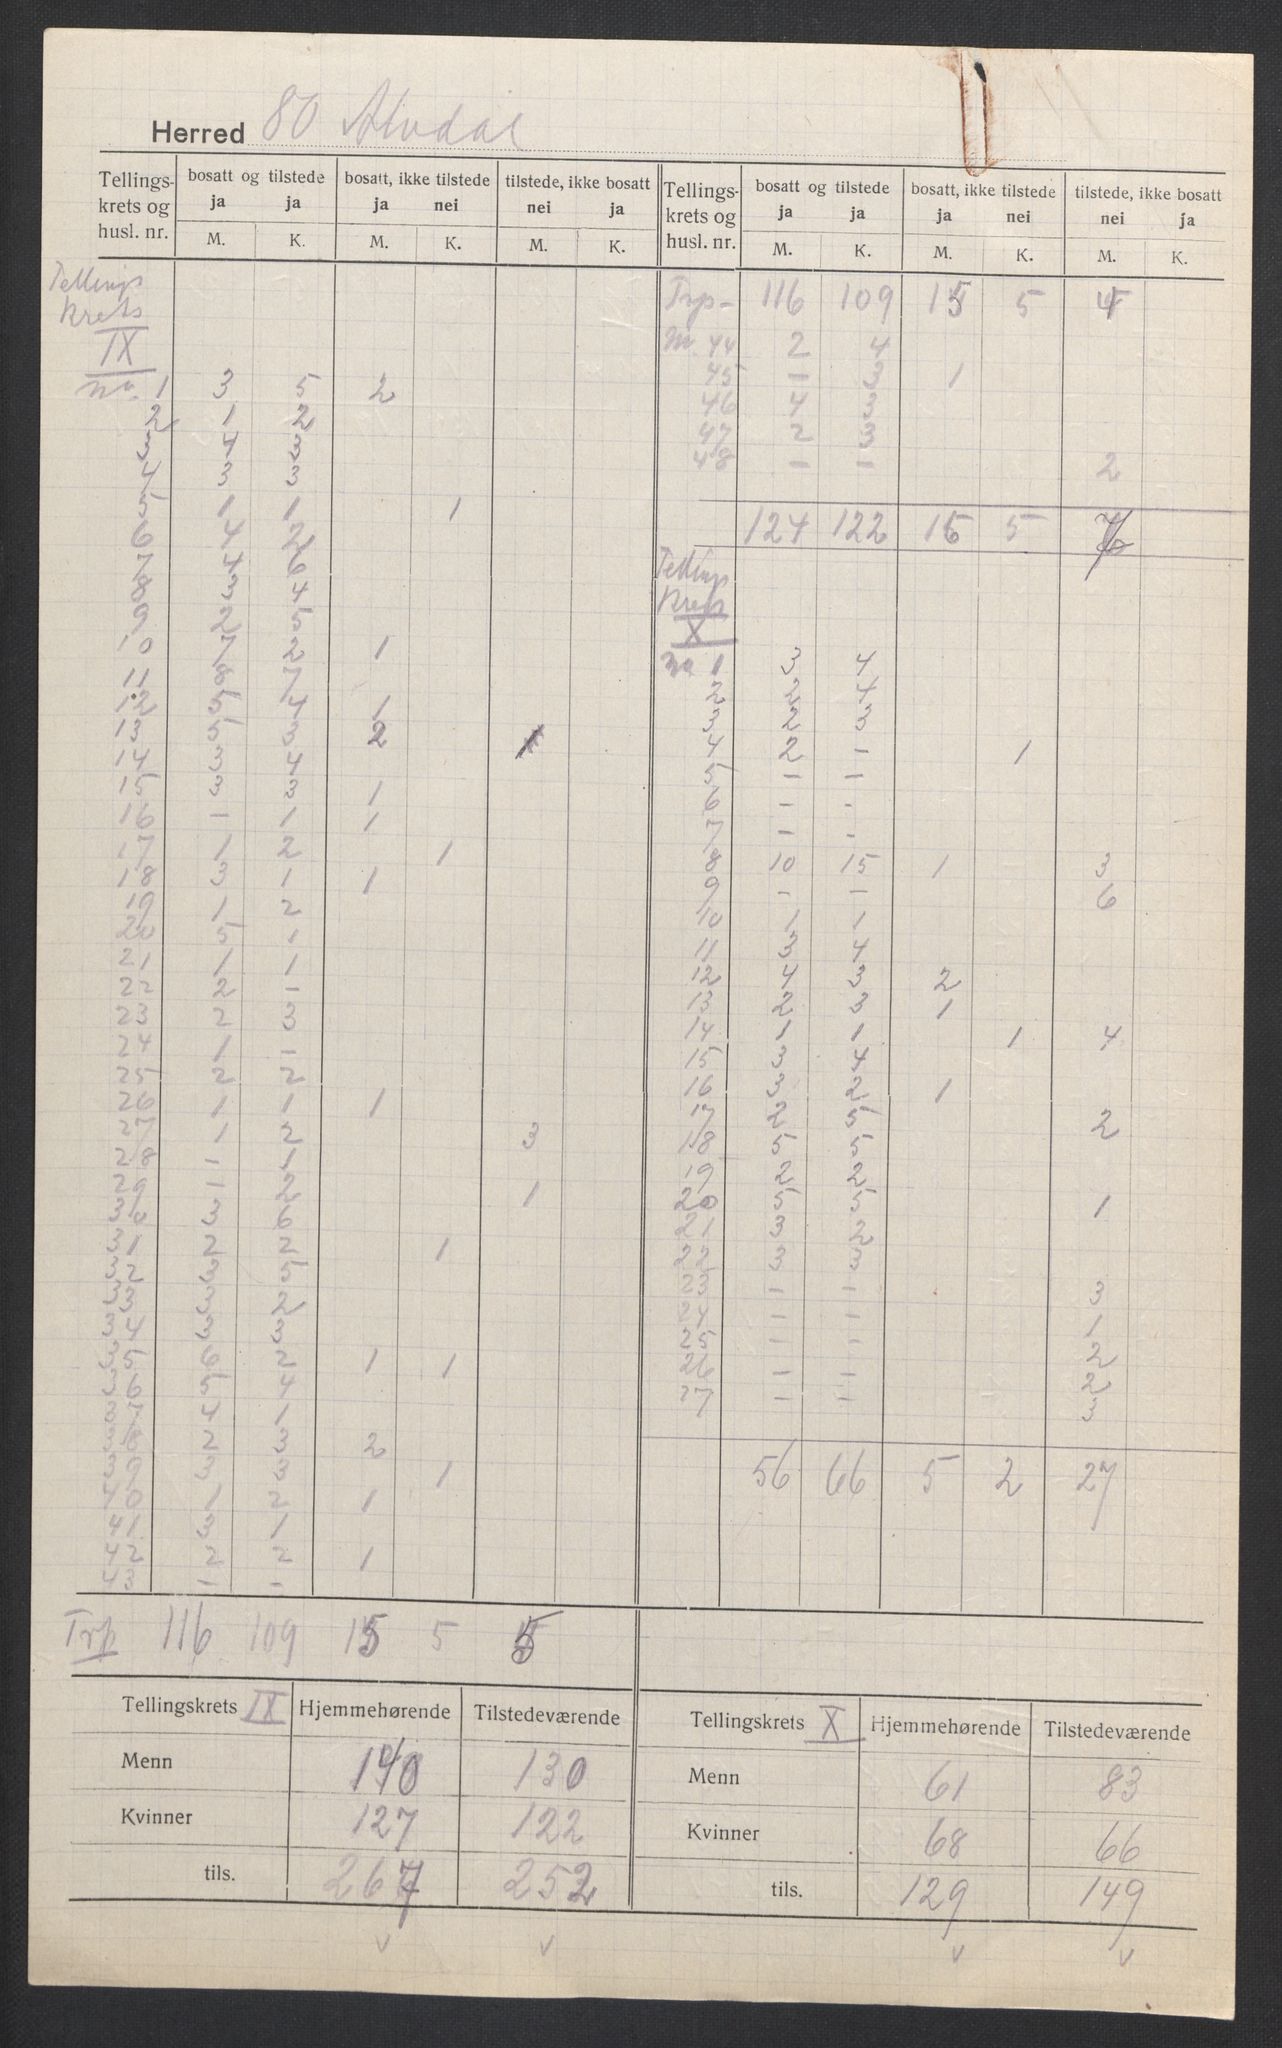 Herred 80 Alvdal
Tellingskrets og husl. nr. | bosatt og tilstede ja M. | ja K. | bosatt, ikke tilstede ja M. | nei K. | tilstede, ikke bosatt nei M. | ja K.
Tellings
krets
IX
no. 1 3 5 2
2 1 2
3 4 3
4 3 3
5 1 1 1
6 4 2
7 4 6
8 3 4
9 2 5
10 7 2 1
11 8 7
12 5 4 1
13 5 3 2
14 3 4
15 3 3 1
16 - 1 1
17 1 2 1
18 3 1 1
19 1 2
20 5 1
21 1 1
22 2 -
23 2 3
24 1 -
25 2 2
26 1 1 1
27 1 2 3
28 - 1
29 1 2 1
30 3 6
31 2 2 1
32 3 5
33 3 2
34 3 3
35 6 2 1 1
36 5 4
37 4 1
38 2 3 2
39 3 3 1
40 1 2 1
41 3 1
42 2 2 1
43 - -
Trp 116 109 15 5 5
Tellingskrets og husl. nr. | bosatt og tilstede ja M. | ja K. | bosatt, ikke tilstede ja M. | nei K. | tilstede, ikke bosatt nei M. | ja K.
Trp- 116 109 15 5
Nr. 44 2 4
45 - 3 1
46 4 3
47 2 3
48 - - 2
124 122 16 5
Tellings
Krets
X
No 1 3 4
2 2 4
3 2 3
4 2 - 1
5 - -
6 - -
7 - -
8 10 15 1 3
9 - - 6
10 1 1
11 3 4
12 4 3 2
13 2 3 1
14 1 1 1 4
15 3 4
16 3 2 1
17 2 5 2
18 5 5
19 2 2
20 5 5 1
21 3 2
22 3 3
23 - - 3
24 - - 1
25 - - 2
26 - - 2
27 - - 3
56 66 5 2 27
Tellingskrets IX Hjemmehørende Tilstedeværende
Menn 140 130
Kvinner 127 122
tils. 267 252
v v
Tellingskrets X Hjemmehørende Tilstedeværende
Menn 61 83
Kvinner 68 66
tils. 129 149
v v